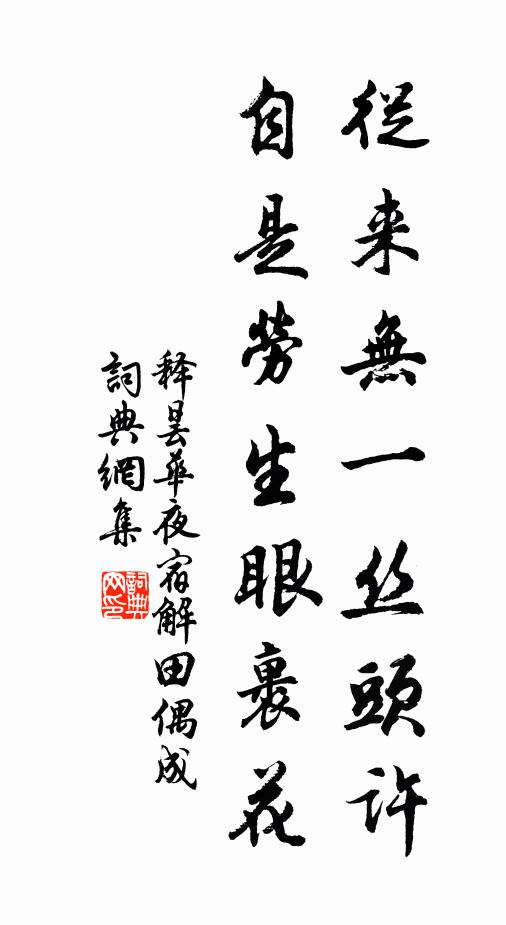 從来無一丝頭許
自是勞生眼裏花
释曇華夜宿解田偶成
詞典網集
詞典网印